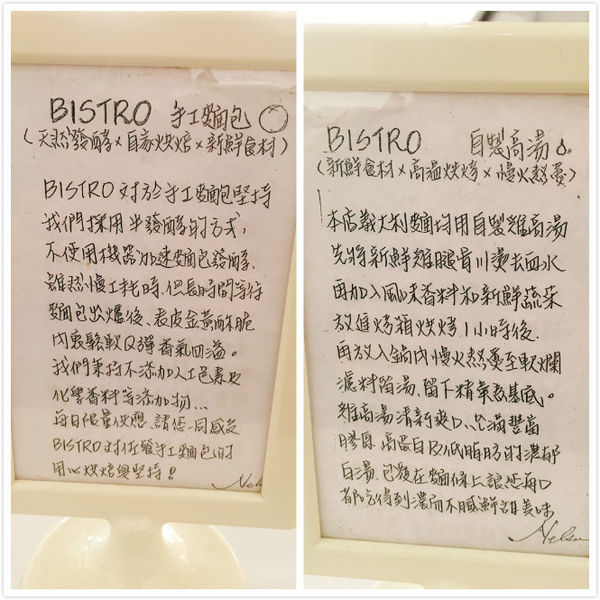 BISTRO 手工麵包
(天然發酵×自家烘焙×新鮮食材)
BISTRO 對於手工麵包堅持
我們採用半發酵的方式,
不使用機器加速麵包發酵,
雖然慢工耗時,但長時間等待
麵包出爐後、表皮金黃酥脆
內裏鬆軟Q彈香氣四溢。
我們秉持不添加人工色素及
化學香料等添加物...
每日限量供應,請您一同感受
BISTRO 對任發手工麵包的
用心烘焙與堅持!
BISTRO 自製高湯
(新鮮食材×高溫烘烤×慢火熬煮)
本店義大利麵均用自製雞高湯
先將新鮮雞腿骨川燙去血水
再加入風味香料和新鮮蔬菜
放進烤箱烘烤1小時後.
再放入鍋內慢火熬煮至軟爛
濾料留湯、留下精華煮基底。
雞高湯清新爽口、充滿豐富
膠原、高蛋白及低脂肪的濃郁
白湯、包覆在麵條上讓您每口
都吃得到濃而不膩鮮甜美味
Nelson